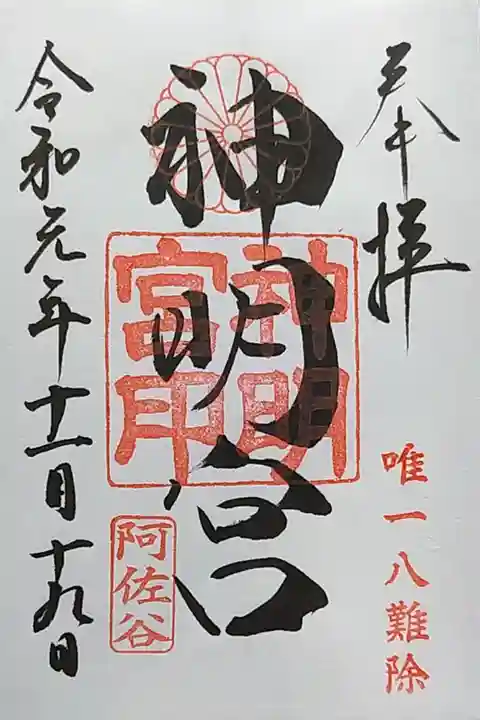 奉拝
唯一八難除
神明宮
神明
宮印
阿佐谷
令和元年十一月十九日